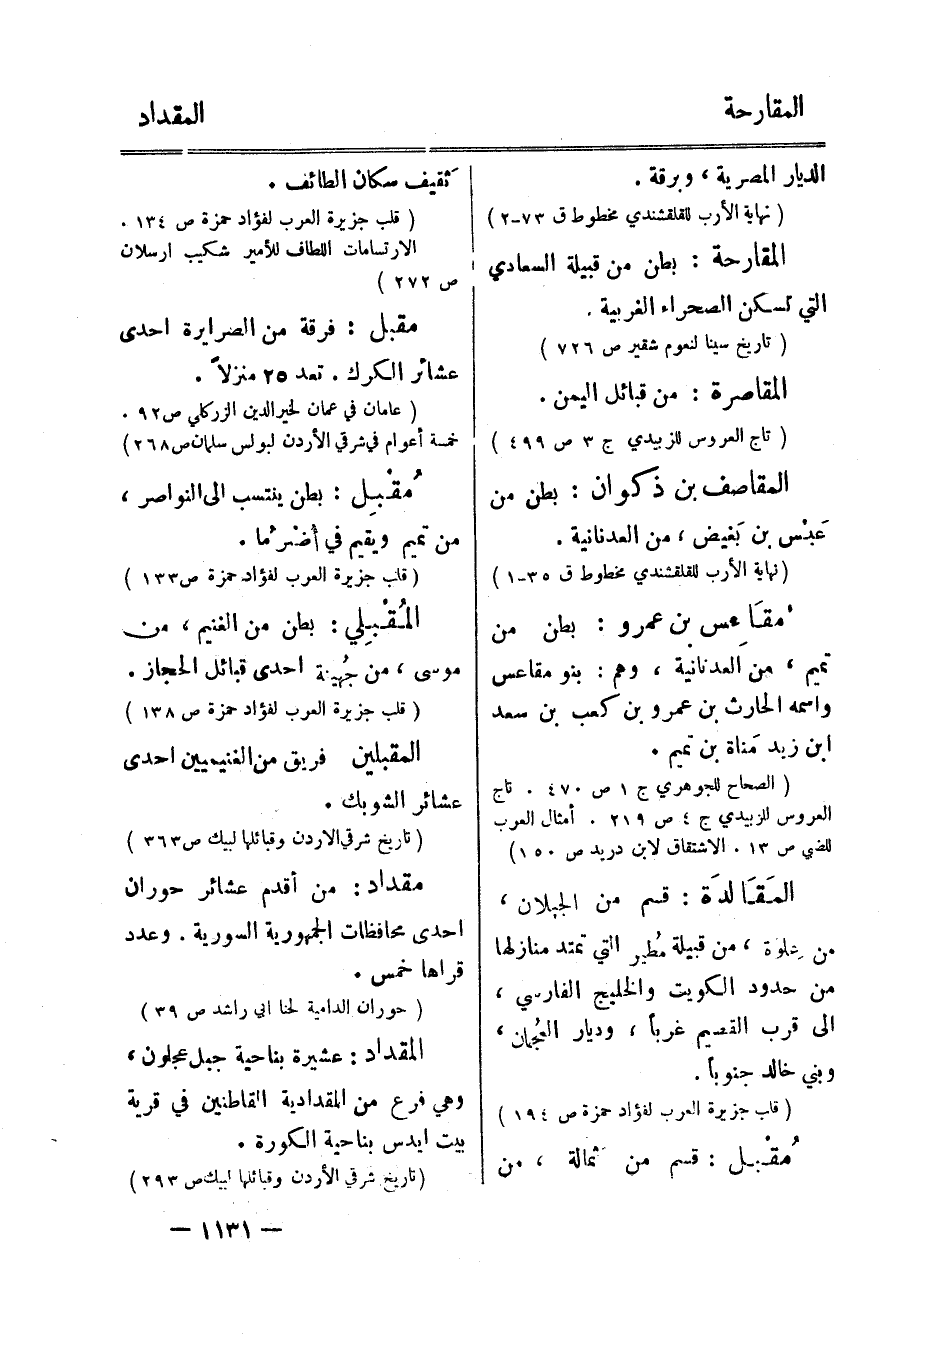 المقارحة
المقداد
الديار المصرية ، وبرقة .
( نهاية الأرب للقلقشندي مخطوط ق ٧٣-٢ )
المقارحة : بطن من قبيلة السعادي
التي تسكن الصحراء الغربية .
( تاريخ سينا لنعوم شقير ص ٧٢٦ )
المقاصرة : من قبائل اليمن .
( تاج العروس للزبيدي ج ٣ ص ٤٩٩ )
المقاصف بن ذكوان : بطن من
عَبْس بن بَغيض ، من العدنانية .
( نهاية الأرب للقلقشندي مخطوط ق ٣٥-١ )
مُقَاعِس بن عمرو : بطن من
تميم ، من العدنانية ، وهم : بنو مقاعس
واسمه الحارث بن عمرو بن كعب بن سعد
ابن زيد مَناة بن تميم .
( الصحاح للجوهري ج ١ ص ٤٧٠ . تاج
العروس للزبيدي ج ٤ ص ٢١٩ . أمثال العرب
للضبي ص ١٣ . الاشتقاق لابن دريد ص ١٥٠ )
المَقَالدَة : قسم من الجبلان ،
من عِلوَة ، من قبيلة مُطير التي تمتد منازلها
من حدود الكويت والخليج الفارسي ،
الى قرب القصيم غرباً ، وديار العُجمان ،
وبني خالد جنوباً .
( قلب جزيرة العرب لفؤاد حمزة ص ١٩٤ )
مُقْبل : قسم من ثمالة ، من
ثَقيف سكان الطائف .
( قلب جزيرة العرب لفؤاد حمزة ص ١٣٤ .
الارتسامات اللطاف للأمير شكيب ارسلان
ص ٢٧٢ )
مقبل : فرقة من الصرايرة احدى
عشائر الكرك . تعد ٢٥ منزلاً .
( عامان في عمان لخيرالدين الزركلي ص٩٢ .
خمسة أعوام في شرقي الأردن لبولس سلمان ص٢٦٨ )
مُقْبِل : بطن ينتسب الى النواصر ،
من تميم ويقيم في أضْرُما .
( قلب جزيرة العرب لفؤاد حمزة ص١٣٣ )
المُقْبِلي : بطن من الغنيم ، من
موسى ، من جُهينة احدى قبائل الحجاز .
( قلب جزيرة العرب لفؤاد حمزة ص ١٣٨ )
المقبلين فريق من الغنيميين احدى
عشائر الشوبك .
( تاريخ شرقي الاردن وقبائلها لبيك ص٣٦٣ )
مقداد : من أقدم عشائر حوران
احدى محافظات الجمهورية السورية . وعدد
قراها خمس .
( حوران الدامية لحنا ابي راشد ص ٣٩ )
المقداد : عشيرة بناحية جبل عجلون ،
وهي فرع من المقدادية القاطنين في قرية
بيت ايدس بناحية الكورة .
( تاريخ شرقي الأردن وقبائلها لبيك ص٢٩٣ )
— ١١٣١ —